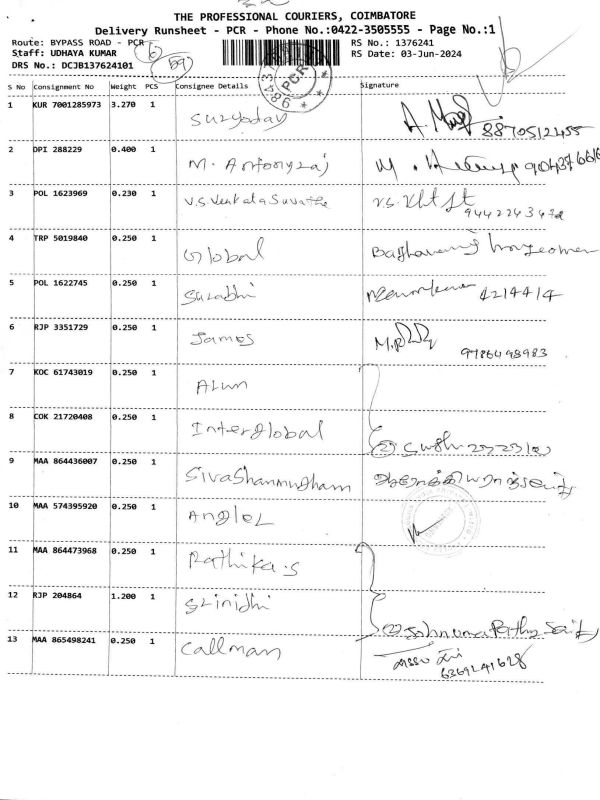 THE PROFESSIONAL COURIERS, COIMBATORE
Delivery Runsheet - PCR - Phone No.:0422-3505555 - Page No.:1
Route: BYPASS ROAD - PCR
RS No.: 1376241
Staff: UDHAYA KUMAR
RS Date: 03-Jun-2024
DRS No.: DCJB137624101
PCR
S No Consignment No Weight PCS Consignee Details Signature
1 KUR 7001285973 3.270 1 Suryoday 8870512455
2 DPI 288229 0.400 1 M. Antonyraj
3 POL 1623969 0.230 1 V.S.
4 TRP 5019840 0.250 1 Global
5 POL 1622745 0.250 1 Surabhi 4214414
6 RJP 3351729 0.250 1 James 9786498983
7 KOC 61743019 0.250 1 Arun
8 COK 21720408 0.250 1 Interglobal
9 MAA 864436007 0.250 1 Sivashanmugham
10 MAA 574395920 0.250 1 Angler
11 MAA 864473968 0.250 1 Rathika.S
12 RJP 204864 1.200 1 Srinidhi
13 MAA 865498241 0.250 1 Callman 6369241628